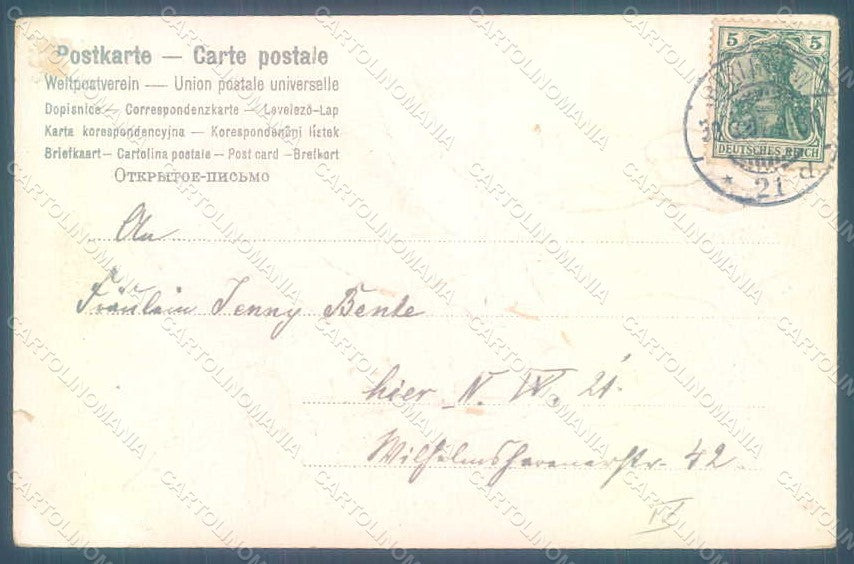 Postkarte — Carte postale
Weltpostverein — Union postale universelle
Dopisnice — Correspondenzkarte — Levelezö-Lap
Karta korespondencyjna — Korespondenční lístek
Briefkaart — Cartolina postale — Post card — Brefkort
Открытое-письмо
5 5
DEUTSCHES REICH
* 21 d
An
Fräulein Jenny Bente
hier N. W. 21.
Wilhelmshavenerstr. 42
CARTOLINOMANIA